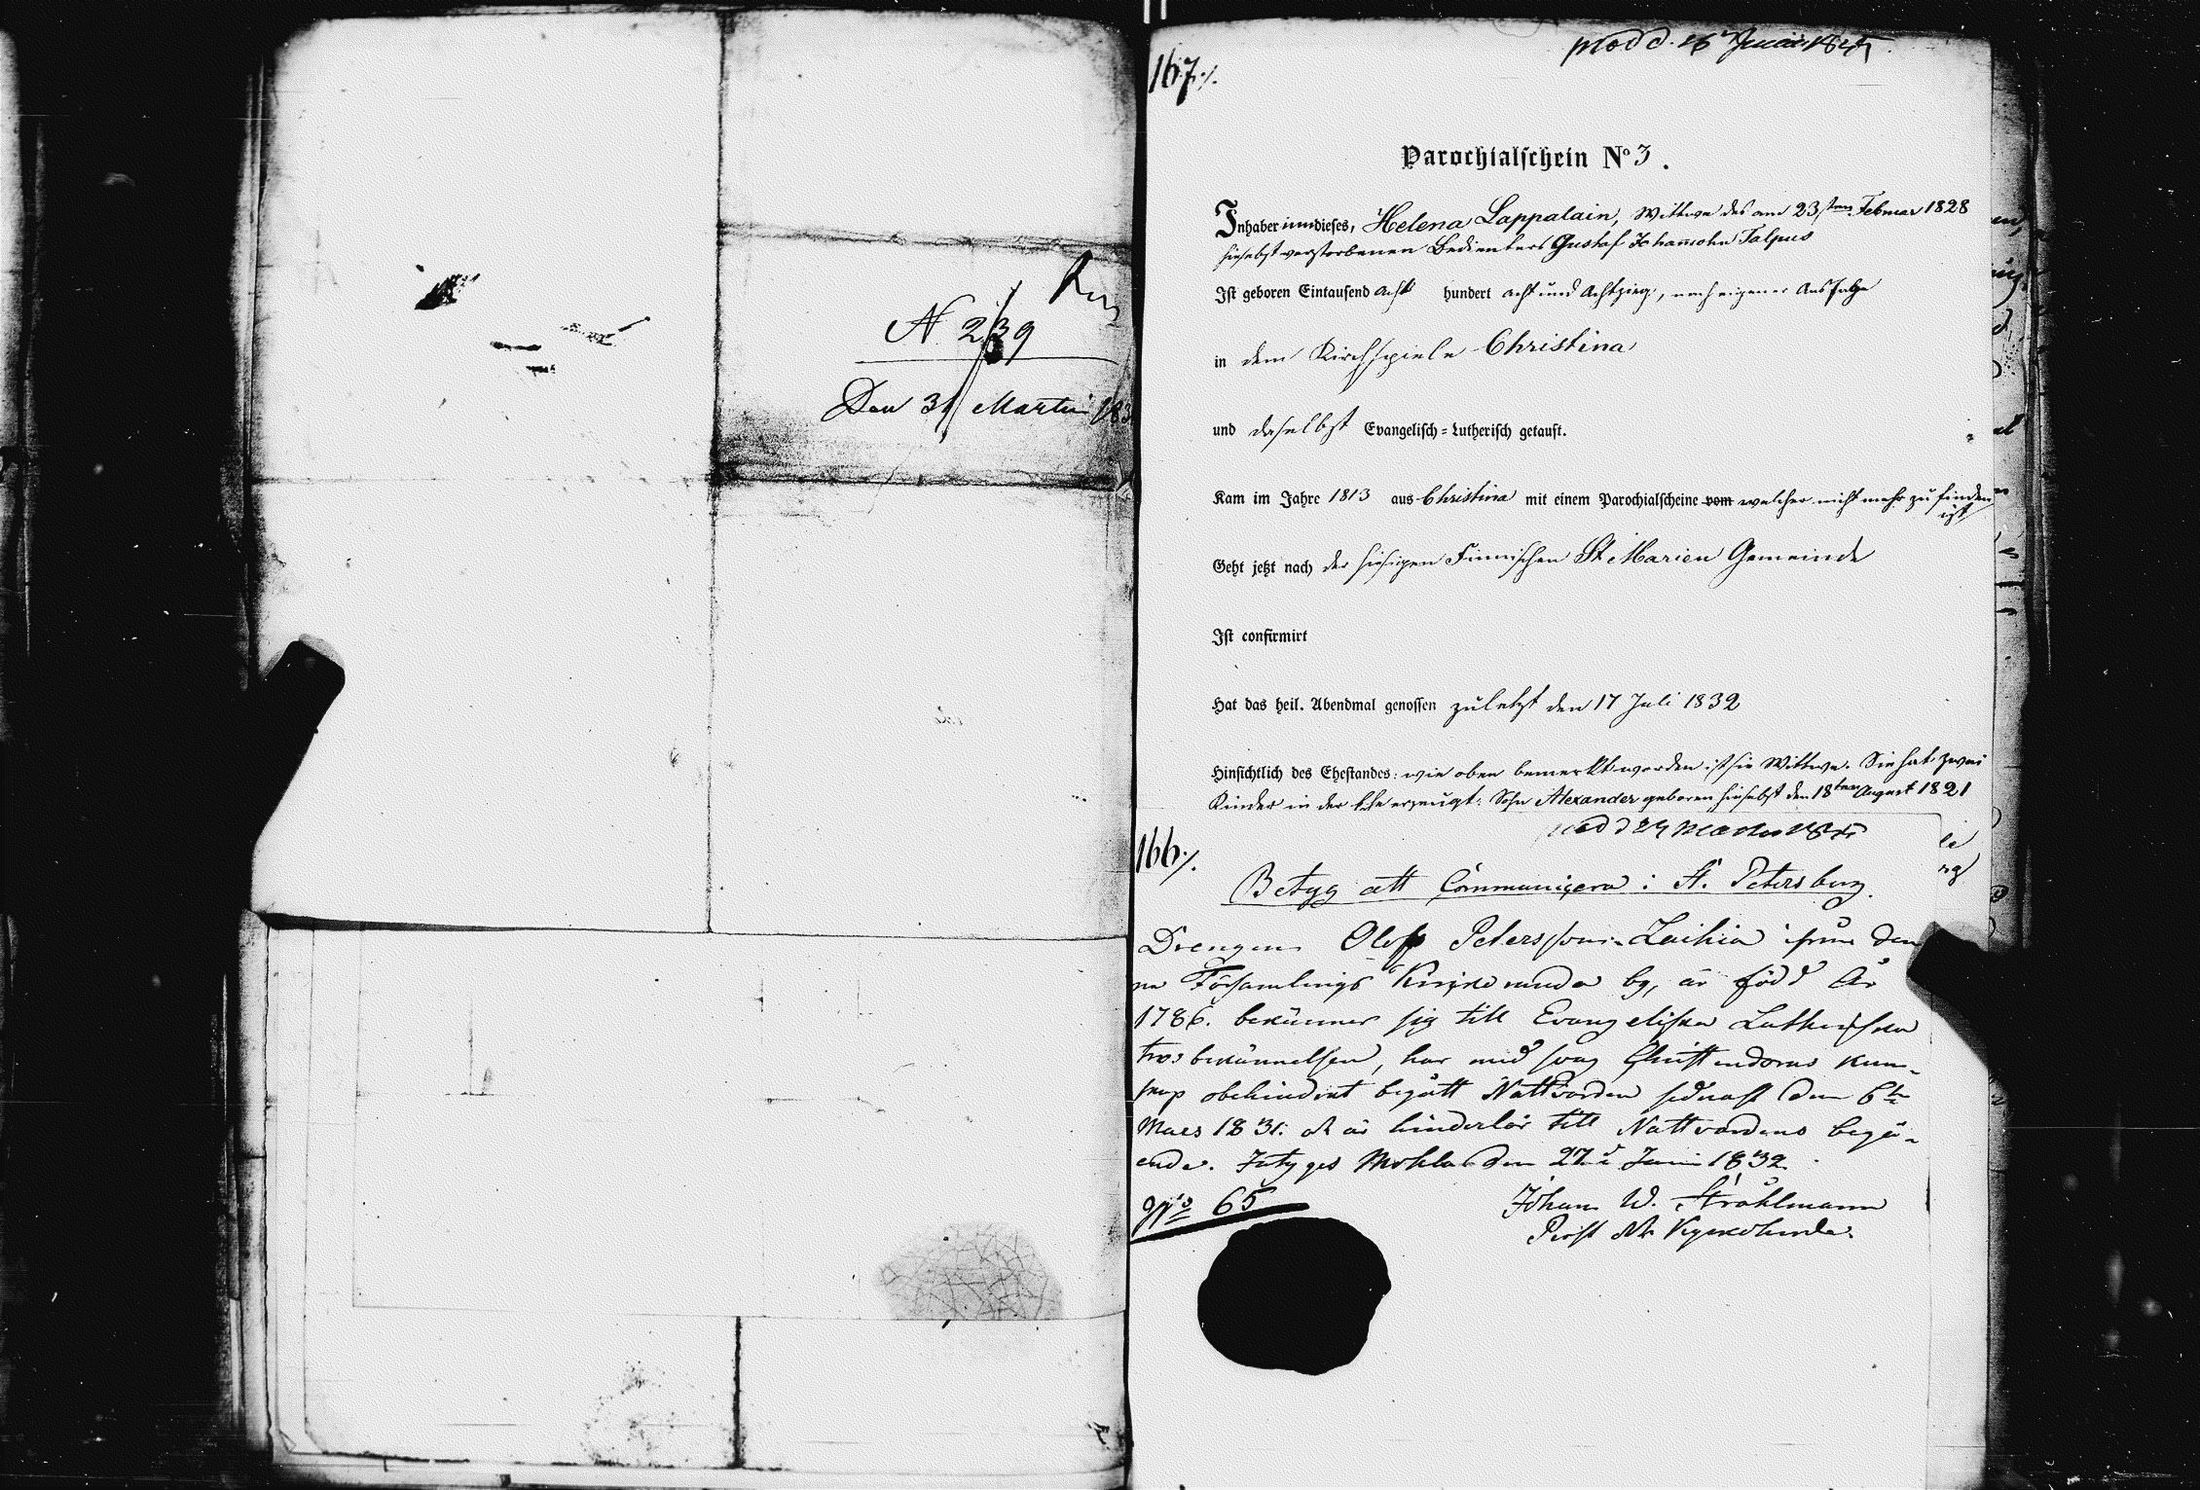 N 239
Den 31 Martii 183
167./.
prod d. 26 Junii
Parochialschein No 3.
Inhaberinn dieses, Helena Lappalain, Wittwe des am 23sten Februar 1828
hieselbst verstorbenen Bedienters Gustaf Johannsohn Talpus
Ist geboren Eintausend acht hundert acht und achtzig, nach eigener Aussage
in dem Kirchspiele Christina
und daselbst Evangelisch=Lutherisch getauft.
Kam im Jahre 1813 aus Christina mit einem Parochialscheine vom welcher nicht mehr zu finden
ist
Geht jetzt nach der hiesigen Finnischen St Marien Gemeinde
Ist confirmirt
Hat das heil. Abendmal genossen zuletzt den 17 Juli 1832
Hinsichtlich des Ehestandes: wie oben bemerkt worden ist sie Wittwe. Sie hat zwei
Kinder in der Ehe erzeugt: Sohn Alexander geboren hieselbst den 18ten August 1821
166./.
Betyg att Communicera i St. Petersburg.
Drengen Oloff Petersson Laihia ifrån den
na Församlings by, är född År
1786. bekänner sig till Evangeliska Lutherska
trosbekännelsen, har med svag Christendoms kun-
skap obehindrat begått Nattvarden sednast den 6te
Mars 1831. och är hinderlös till Nattvardens begå-
ende. Intygas Mohla den 27de Juni 1832.
No 65
Johan W. Stråhlmann
Prost och Kyrkoherde.